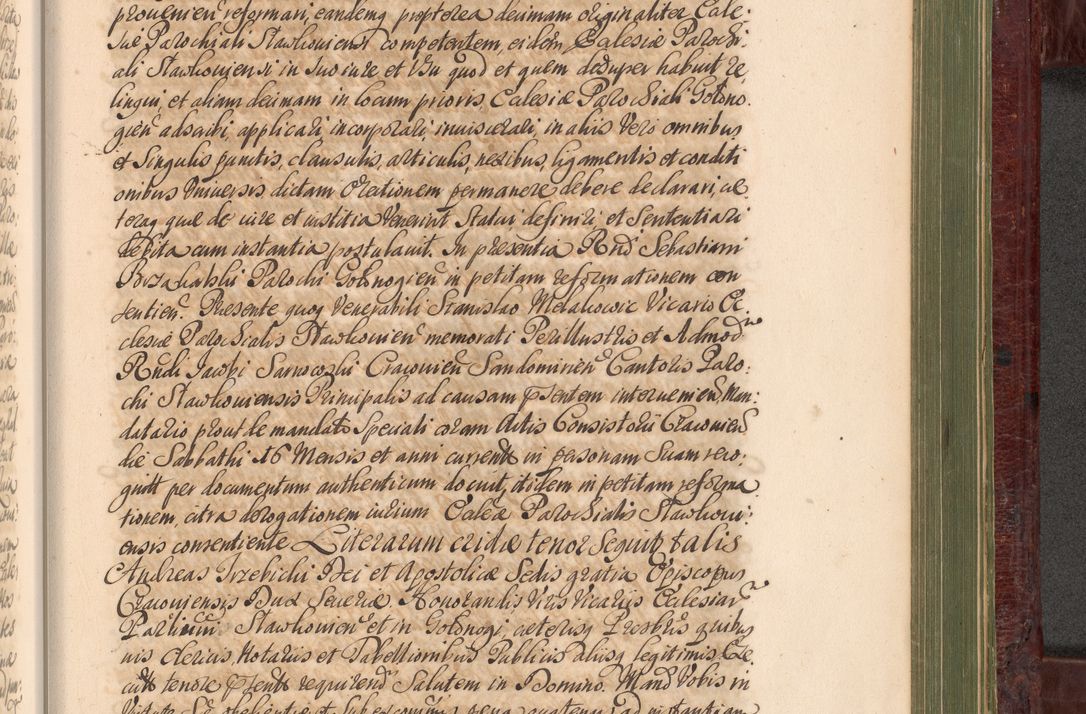 prouenien̄ reformari, eandemq́ propterea decimam originaliter Eccle-
siae Parochiali Slawkouiensi competentem, eidem Ecclesiae Parochi-
ali Slawkouiensi in suo iure et Vsu quod et quem desuper habuit re-
linqui, et aliam decimam in locum prioris, Ecclesiae Parochiali Golono-
gien̄ adscribi, applicari, incorporari, inuiscerari, in aliis Vero omnibus
et Singulis punctis, clausulis, articulis, nexibus, ligamentis et conditi
onibus Vniuersis, dictam Erectionem permanere debere declarari, ce
teraq́ quae de iure et iustitia Venerint Statui, definiri et Sententiari
debita cum instantia postulauit. In presentia Rndi Sebastiani
Parochi Golonogien̄ in petitam reformationem con
sentien̄. Presente quoq́ Venerabili Stanislao Vicario Ec-
clesiae Parochialis Slawkouien̄ memorati Perillustris et Admod̄
Rndi Jacobi Cracouien̄ Sandomirien̄ Cantoris Paro-
chi Slawkouiensis Principalis ad causam p̄sentem interuenien̄, Man-
datario prout de mandato Speciali coram Actis Consistorii Cracouien̄
die Sabbathi 16 Mensis et anni currentis in personam Suam
per documentum authenticum docuit, itidem in petitam reforma
tionem, citra derogationem iurium Ecclae Parochialis Slawkoui-
ensis consentiente Literarum cridae tenor Sequit talis
Andreas Trzebicki Dei et Apostolicae Sedis gratia Episcopus
Cracouiensis Dux Seueriae. Honorandis Viris Vicariis Ecclesiar̄
Parlium̄ Slawkouien̄ et in Golonogi, ceterisq́ Presbris quibus
uis Clericis, Notariis et Tabellionibus Publicis aliisq́ legitimis, Exe-
cutt̄ tenore p̄sentt̄ requirend̄ Salutem in Domino. Mand̄ Vobis in